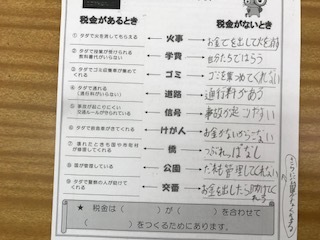 税金があるとき 税金がないとき
① タダで火を消してもらえる ← 火事 → お金を出して火を消
② タダで授業が受けられる
教科書代がいらない ← 学費 → 自分たちではらう
③ タダでゴミ収集車が集めて
くれる ← ゴミ → ゴミを集めてくれない
④ タダで通れる
(通行料がいらない) ← 道路 → 通行料がかかる
⑤ 事故が起こりにくい
交通ルールが守られている ← 信号 → 事故が
⑥ タダで救急車がきてくれる ← けが人 → お金がないからこない
⑦ 壊れたときも国や市町村
が修理してくれる ← 橋 → つぶれっぱなし
⑧ 国が管理している ← 公園 → だれも管理してくれない
⑨ タダで警察の人が助けて
くれる ← 交番 → お金を出したら助けてくれる
★ 税金は( )が( )を合わせて
( )をつくるためにあります。